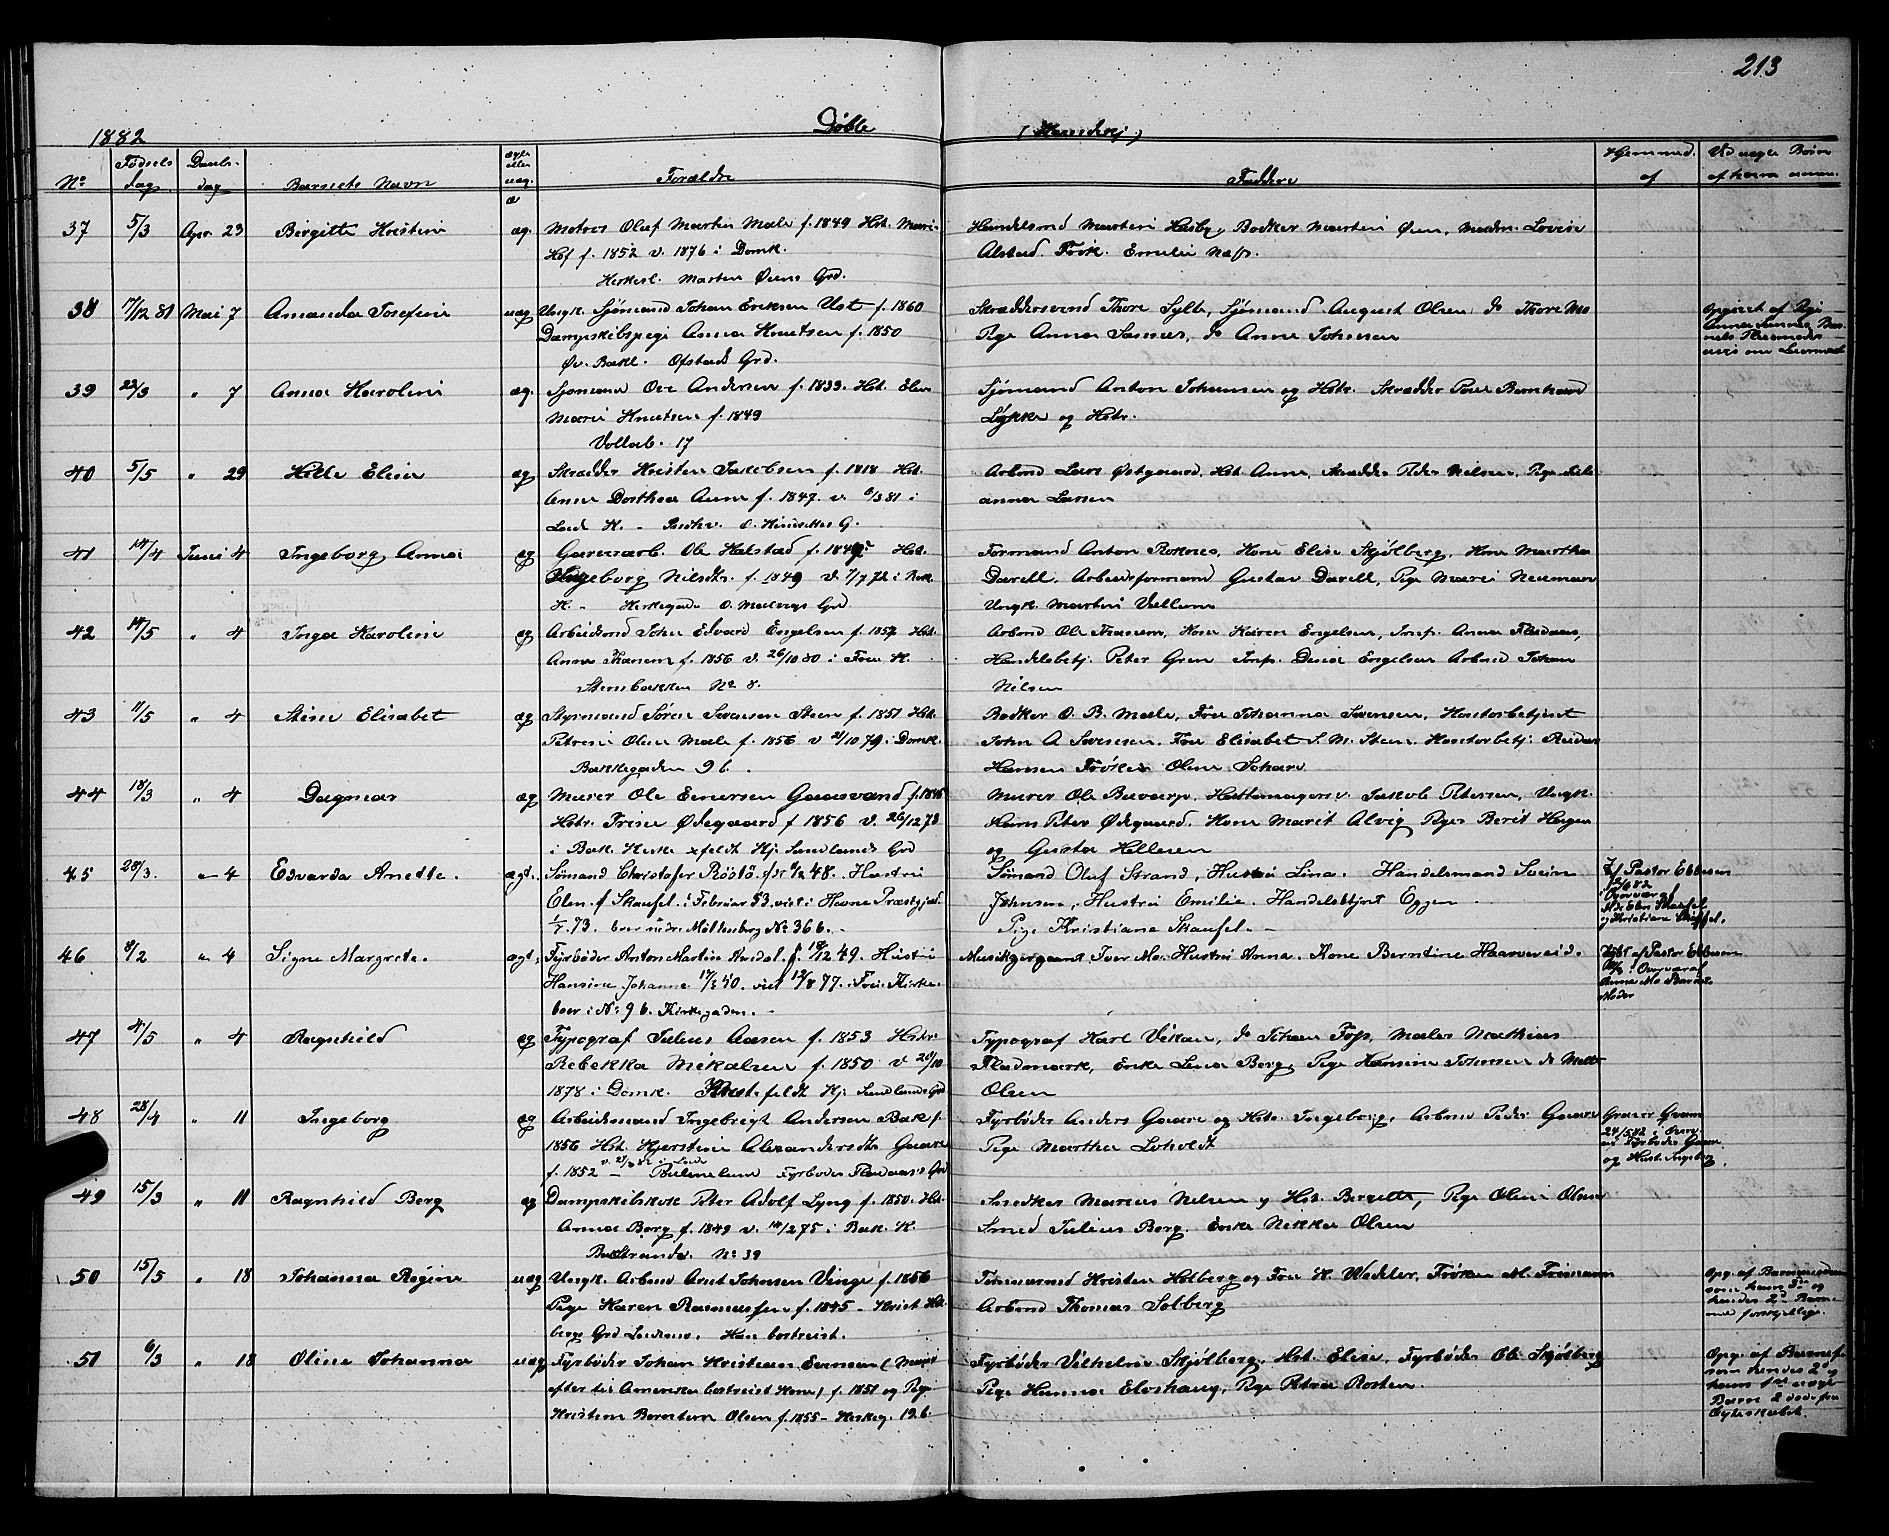 213
1882 Døbte (Kvindekj.)
No Fødsels dag Daabs- dag Barnets Navn ægte eller uæg. Forældre Faddere Hjemmed. af Ved uægte Børn
37 5/3 Apr. 23 Birgitte Kristine æg. Olaf Martin Mæle f. 1849 Hst. Marie
Hof f. 1852 v. 1876 i Domk.
Kirkesl. Marten Øiens Grd.
Handelsmd Martin Huseby, Bødker Martin Øien, Louise
Alstad. Frøk. Emilie Næss.
38 7/12 81 Mai 7 Amanda Josefine uæg Ungk. Sjømand Johan Eriksen Ust f. 1860
Dampskibspige Anna Knutsen f. 1850
Øv. Bakl. Ofstads Grd.
Skræddersvend Thore Sylte, Sjømand August Olsen, Do Thore Mo
Pige Anna Do Anne Johnsen
Opgivet af Pige
39 22/3 " 7 Anna Karoline æg. Sjømand Ove Andersen f. 1833. Hst. Elen
Marie Knutsen f. 1849
Vollab. 17
Sjømand Anton Johansen og Hstr. Skrædder Poul Bernhard
Lykke og Hstr.
40 5/5 " 29 Elise æg Skrædder Kristen Jakobsen f. 1818 Hst.
Anne Dorthea Aune f. 1847. v. 6/3 81 i
Lade K.
Arbmd Lars Østgaard, Hst. Anne, Skrædder Peder Nilsen, Pige
anna Larsen
41 14/4 Juni 4 Ingeborg Anna æg Garverarb. Ole Halstad f. 1849 Hst.
Ingeborg Nilsdtr. f. 1849 v. 7/7 72 i Bak
K. - Kirkegade O. Malvigs Grd.
Formand Anton Roknes, Kone Elise Skjølberg, Kone Martha
Darell. Arbeidsformand Gustav Darell, Pige Marie Neuman
Ungk. Martin Vullum
42 14/5 " 4 Inga Karoline æg Arbeidsmd John Edvard Engelsen f. 1857 Hst.
Anne Thanem f. 1856 v. 26/10 80 i Frue K.
Stensbakken No 8.
Arbmd Ole Thanem, Kone Karen Engelsen, Jmfr. Anna Fladaas,
Handelsbetj. Peter Gren Jmfr. Dina Engelsen Arbmd Johan
Nilsen
43 11/5 " 4 Stine Elisabet æg Styrmand Søren Sørensen Steen f. 1851 Hst.
Petrine Olsen Mæle f. 1856 v 21/10 79 i Domk.
Bakkegaden 96.
Bødker O. B. Mæle, Frue Johanna Sørensen, Kontorbetjent
John A Sørensen. Frue Elisabet S. M. Steen. Kontorbetj.
Hansen Frøken Oline Schare
44 18/3 " 4 Dagmar æg Murer Ole Enersen Gaasvand f. 1845
Hstr. Trine Ødegaard f 1856 v. 26/12 78
i Bak. Kirke Hj. Sundlands Grd
Murer Ole Bavarp, Hattemagersv. Jakob Petersen, Ungk.
Hans Peter Ødegaard, Kone Marit Alvig Piger Berit Hagen
og Gusta Hellesen
45 28/3. " 4 Edvarda Anette. ægt. Sömand Christofer Röstö f. 48. Hustru
Elen f. Skaufel i Februar 53, viet i Hevne Præstgjeld
1/7 73. boer nedre Möllenberg No 366. -
Sömand Oluf Strand, Hustru Lina. Handelsmand Svein
Johnsen, Hustru Emilie. Handelsbetjent Eggen.
Pige Kristiane Skaufel. -
af Pastor Ebbesen
i Overvær af
og Kristiane Skauffel.
46 8/2 " 4 Signe Margrete. ægt. Fyrböder Anton Martin Andal f. 18/12 49. Hustru
Hansine Johanne 17/5 50. viet 12/8 77. i Frue Kirke.
boer i No 96. Kirkegaden. -
Musikgergeant Iver Mo. Hustru Anna. Kone Berntine Haarveid.
Döbt af Pastor Ebbesen
i Overvær af
Anna Mo Barnets
Moder
47 4/5 " 4 Ragnhild æg Typograf Julius Aasen f. 1853 Hstr
Rebekka Mikalsen f. 1850 v 20/10
1878 i Domk. Hj. Sundlands Grd
Typograf Karl Vikan, Do Johan Foss, Maler Mathias
Fladmark, Enke Lena Berg, Pige Hansine Johnsen Do
Olsen
48 28/4 " 11 Ingeborg æg Arbeidsmand Ingebrigt Andersen Bak f.
1856 Hst. Kjerstine Alexandersdtr Gaare
f. 1852 - Fyrbøder Fladaas's Grd
Fyrbøder Anders Gaare og Hstr. Ingeborg, Arbmd Peder Gaare
Pige Martha Loholdt
24/5 82 i Overv.
af Fyrbøder
og Hust. Ingeborg.
49 15/3 " 11 Ragnhild Berg æg Dampskibskok Peter Adolf Lyng f. 1850. Hst.
Anna Berg f. 1849 v. 14/2 75 i Bak. K.
Bakstranda. No 39
Snedker Marius Nilsen og Hst. Bergitte, Pige Oline Olsen
Smed Julius Berg. Enke Nikka Olsen
50 15/5 " 18 Johanna Regine uæg Ungk. Arbmd Arnt Johnsen Vinge f. 1856
Pige Karen Rasmussen f. 1845 - Krist. Hol
bergs Grd Lademo. Han bortreist.
Tømmermd Kristen Holberg og Frue K. Wedeler, Frøken M. Frimann
Arbmd Thomas Solberg
Opg. af
som hans 3die og
hendes 2d Barn
51 6/3 " 18 Oline Johanna uæg Fyrbøder Johan Kristian (
efter til Amerika bortreist Kone) f. 1851 og Pige
Kristine Berntine Olsen f. 1855 - Kirkeg. 19 b.
Fyrbøder Vilhelm Skjølberg, Hst. Elise, Fyrbøder Ole Skjølberg
Pige Hanna Elvshaug, Pige Petra Rosten.
Opg. af
som hendes 2d og
hans 1ste uægte
Barn